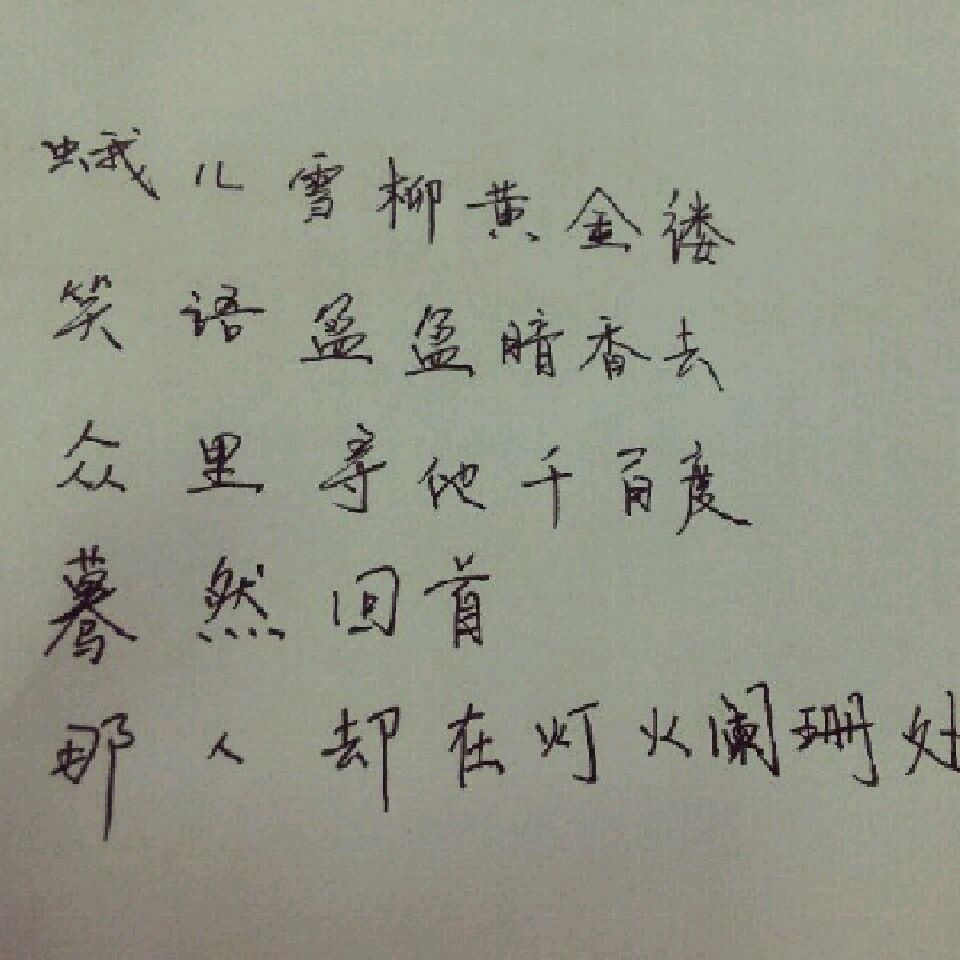 蛾儿雪柳黄金褛
笑语盈盈暗香去
众里寻他千百度
蓦然回首
那人却在灯火阑珊处